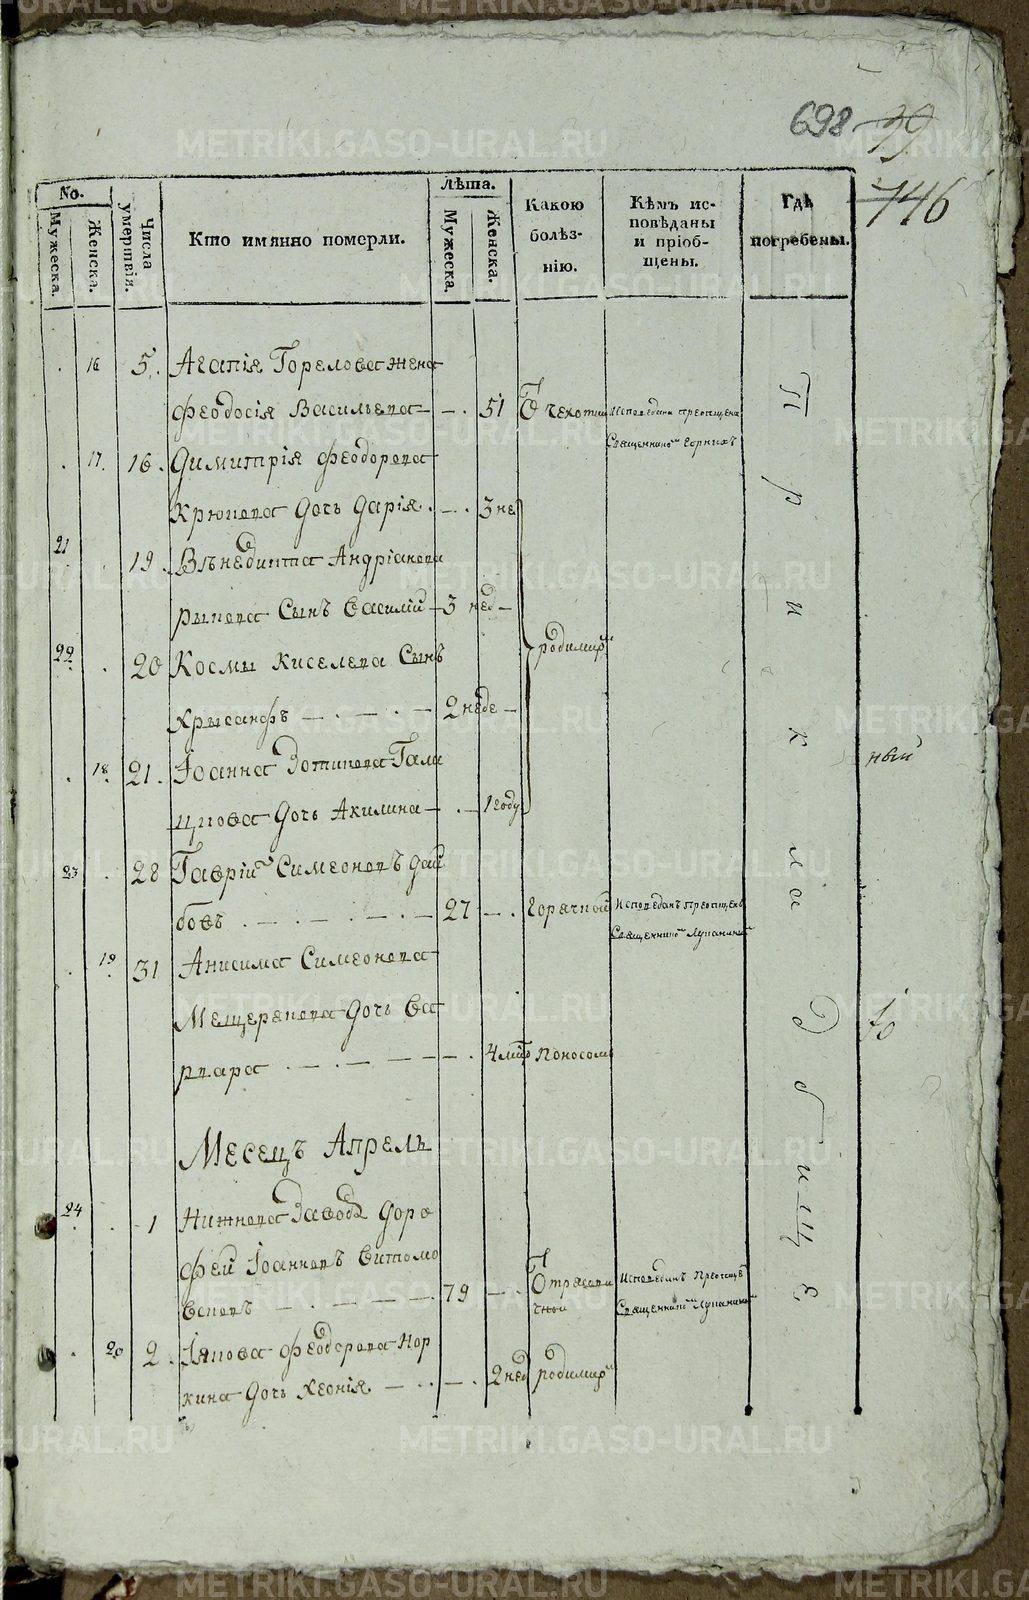 698 39
746
No.
Мужеска.
Женска.
Числа умертвія.
Кто имянно померли.
Лѣта.
Мужеска.
Женска.
Какою болѣз-
нію.
Кѣмъ ис-
повѣданы
и пріоб-
щены.
Гдѣ
погребены.
16 5. Агапія Горелова жена
Феодосія Васильева — . 51 Ѿ чехотки Исповедана преопщена
Священникомъ
17. 16. Димитрія Феодорова
Крюкова дочь Дарія . — . 3 не
21 19. Вѣнедикта Андріанова
Рыкова Сынъ Василій — 3 нед —
родимцъ
22. 20 Космы Киселева Сынъ
Хрисанфъ — . — . — 2 неде —
18. 21. Іоанна Зотикова Гала
цкова дочь Акилина — . — 1 году
23 28 Гавріилъ Симеоновъ
бовъ . — . — . — 27 — . Горячкой Исповеданъ преопщенъ
Священникомъ Лукани
19. 31 Анисима Симеонова
Мещерякова дочь Ва
рвара . — . — — — . 4 мцъ Поносомъ
Месецъ Апрель
24 1 Нижнева Завода Доро
фей Іоанновъ
79 — . Исповеданъ Преопще
Священникомъ Лукани
20 2. Іякова Феодорова Нор
кина дочь Ксенія — . . — . 2 нед родимцъ
При кладбище
ный
METRIKI.GASO-URAL.RU